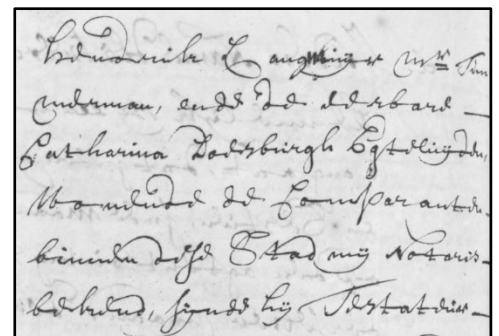 Hendrik Langwijgr Mr Tim
merman, ende de eerbare
Catharina Doesburgh Egteluijden,
Wonende de Comparanten
binnen dese Stad mij Notaris
bekend, sijnde hij Testateur